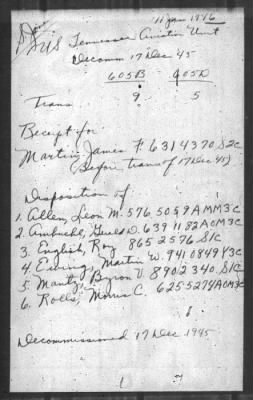 11 Jan 1946
Tennessee Aviation Unit
Decomm 17 Dec 45
605B 905D
Trans 9 5
Receipt for
Martin, James F 631 43 70 S2c
(Before trans of 17 Dec 45)
Disposition of
1. Allen, Leon M. 576 50 59 AMM3C
2. D. 639 11 82 AOM3C
3. English, Roy 865 25 76 S1C
4. Ewing, Martin W. 941 08 49 Y3C
5. Byron V. 890 23 40 S1C
6. Rolls, Morris C. 625 52 74 AOM3C
Decommissioned 17 Dec 1945